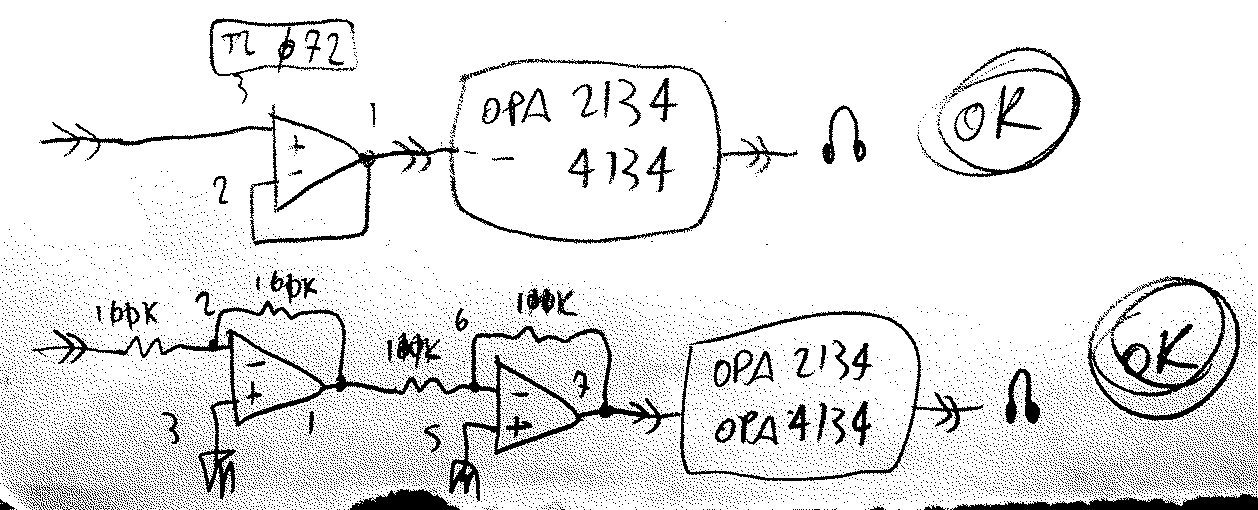 TL 072
1
+
-
2
OPA 2134
- 4134
OK
100K
2
100K
-
+
3
1
100K
6
100K
-
+
5
7
OPA 2134
OPA 4134
OK